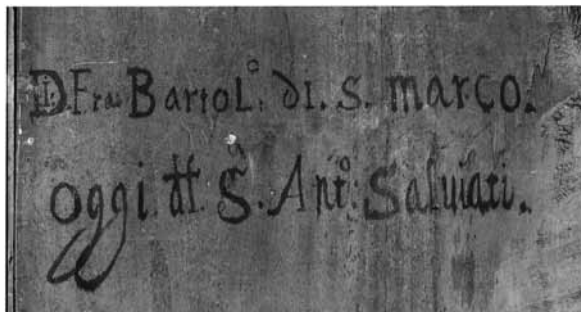 D. Fra Bartolº. di. S. marco.
Oggi. d. Sʳ. Antº. Salviati.